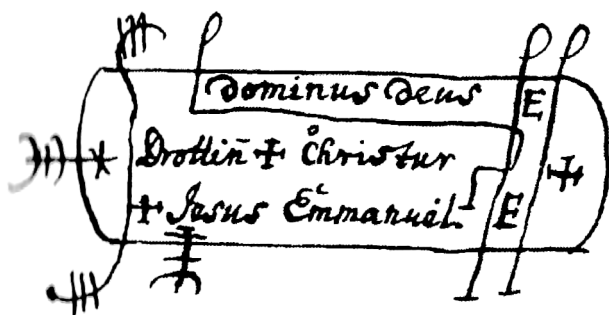 Dominus Deus E
Drottin̄ + Christur
+ Jesus Emmanuel. E